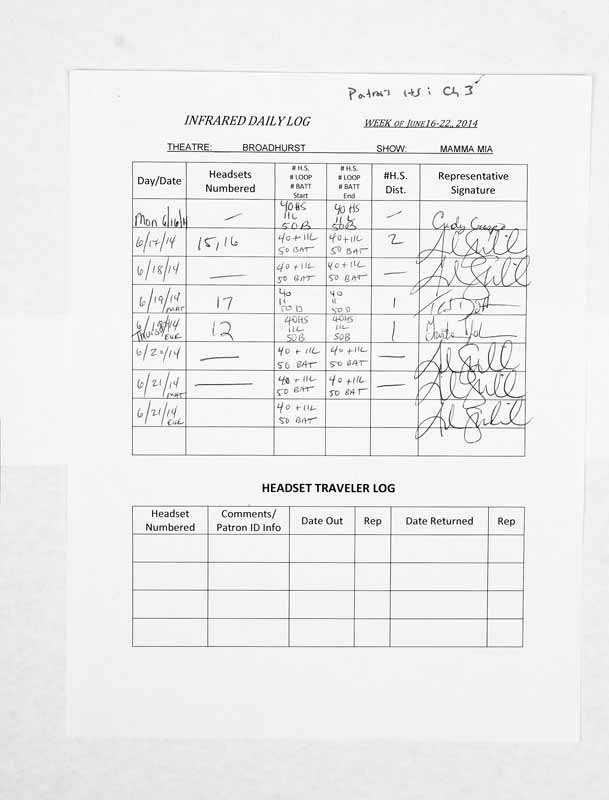 Patron its: Ch 3
INFRARED DAILY LOG WEEK OF JUNE16-22, 2014
THEATRE: BROADHURST SHOW: MAMMA MIA
Day/Date Headsets Numbered # H.S. # LOOP # BATT Start # H.S. # LOOP # BATT End #H.S. Dist. Representative Signature
Mon 6/16/14 — 40HS 11L 50B 40HS 11L 50B —
6/17/14 15,16 40+11L 50 BAT 40+11L 50 BAT 2
6/18/14 — 40+11L 50 BAT 40+11L 50 BAT —
6/19/14 MAT 17 40 11 50 B 40 11 50 B 1
Thurs EVE 12 40HS 11L 50B 40HS 11L 50B 1
6/20/14 — 40+11L 50 BAT 40+11L 50 BAT —
6/21/14 MAT — 40+11L 50 BAT 40+11L 50 BAT —
6/21/14 EVE 40+11L 50 BAT
HEADSET TRAVELER LOG
Headset Numbered Comments/ Patron ID Info Date Out Rep Date Returned Rep